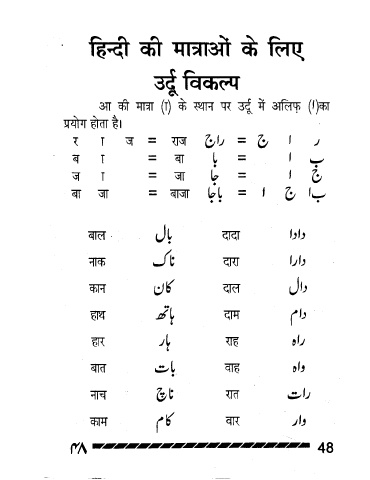 हिन्दी की मात्राओं के लिए
उर्दू विकल्प
आ की मात्रा (ा) के स्थान पर उर्दू में अलिफ़ (ا)का
प्रयोग होता है।
र ा ज = राज راج = ر ا ج
ब ा = बा با = ب ا
ज ा = जा جا = ج ا
बा जा = बाजा باجا = با ج ا
बाल بال दादा دادا
नाक ناک दारा دارا
कान کان दाल دال
हाथ ہاتھ दाम دام
हार ہار राह راہ
बात بات वाह واہ
नाच ناچ रात رات
काम کام वार وار
۴۸ 48